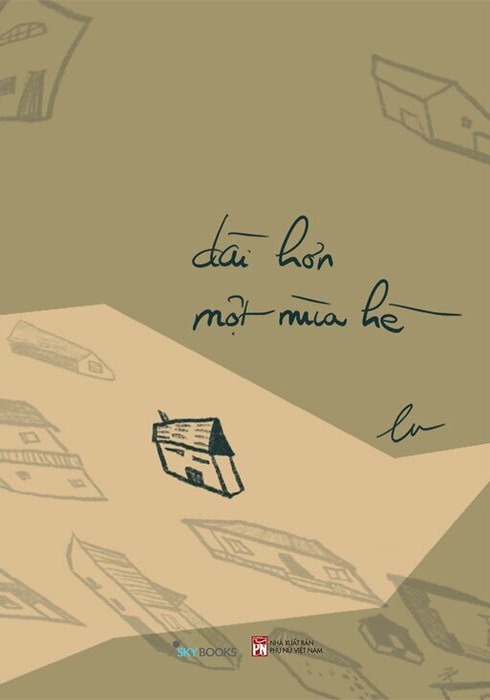 dài hơn
một mùa hè
lu
SKYBOOKS
PN
NHÀ XUẤT BẢN
PHỤ NỮ VIỆT NAM